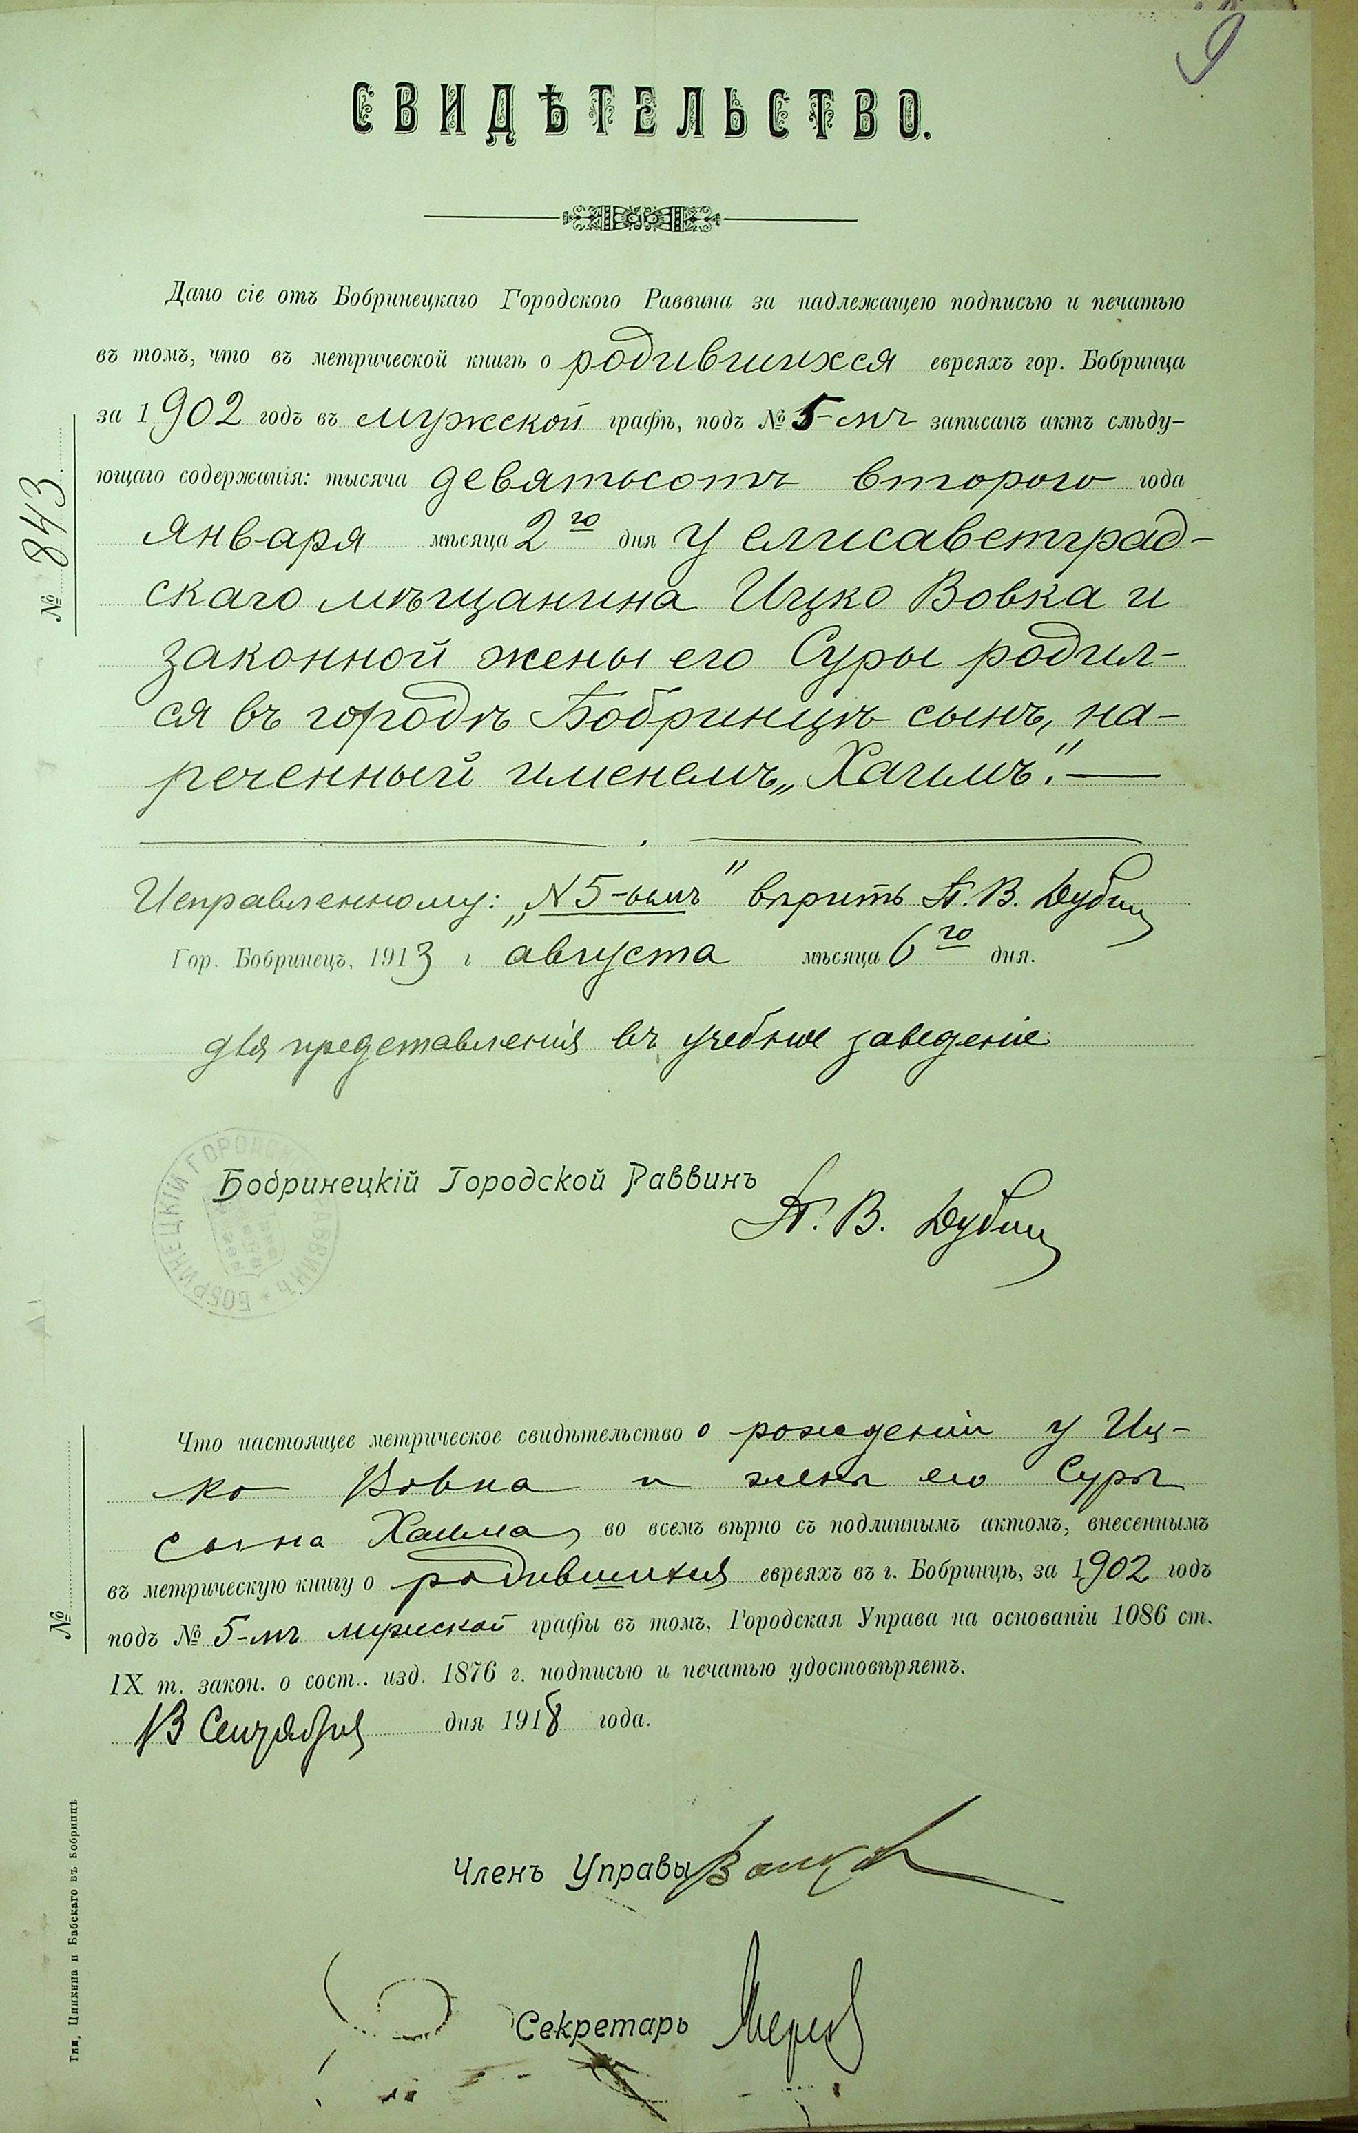 9
СВИДѢТЕЛЬСТВО.
Дано сіе отъ Бобринецкаго Городского Раввина за надлежащею подписью и печатью
въ томъ, что въ метрической книгѣ о родившихся евреяхъ гор. Бобринца
за 1902 годъ въ мужской графѣ, подъ № 5-мъ записанъ актъ слѣду-
ющаго содержанія: тысяча девятьсотъ второго года
января мѣсяца 2го дня у елисаветград-
скаго мѣщанина Ицко Вовка и
законной жены его Суры родил-
ся въ городѣ Бобринцѣ сынъ, на-
реченный именемъ „Хаимъ“.
№ 843.
Исправленному: „№ 5-ымъ“ вѣрить П. В. Дубин
Гор. Бобринецъ, 1913 г августа мѣсяца 6го дня.
для представленія въ учебное заведеніе
Бобринецкій Городской Раввинъ
П. В. Дубин
БОБРИНЕЦКІЙ ГОРОДСКОЙ РАВВИНЪ *
Что настоящее метрическое свидѣтельство о рожденіи у Иц-
ко Вовка и жены его Суры
сына Хаима, во всемъ вѣрно съ подлиннымъ актомъ, внесеннымъ
въ метрическую книгу о родившихся евреяхъ въ г. Бобринцѣ, за 1902 годъ
подъ № 5-мъ мужской графы въ томъ, Городская Управа на основаніи 1086 ст.
IX т. закон. о сост.. изд. 1876 г. подписью и печатью удостовѣряетъ.
№
13 Сентября дня 1918 года.
Членъ Управы
Секретарь
Тип. Цинкина и Бабскаго въ Бобринцѣ